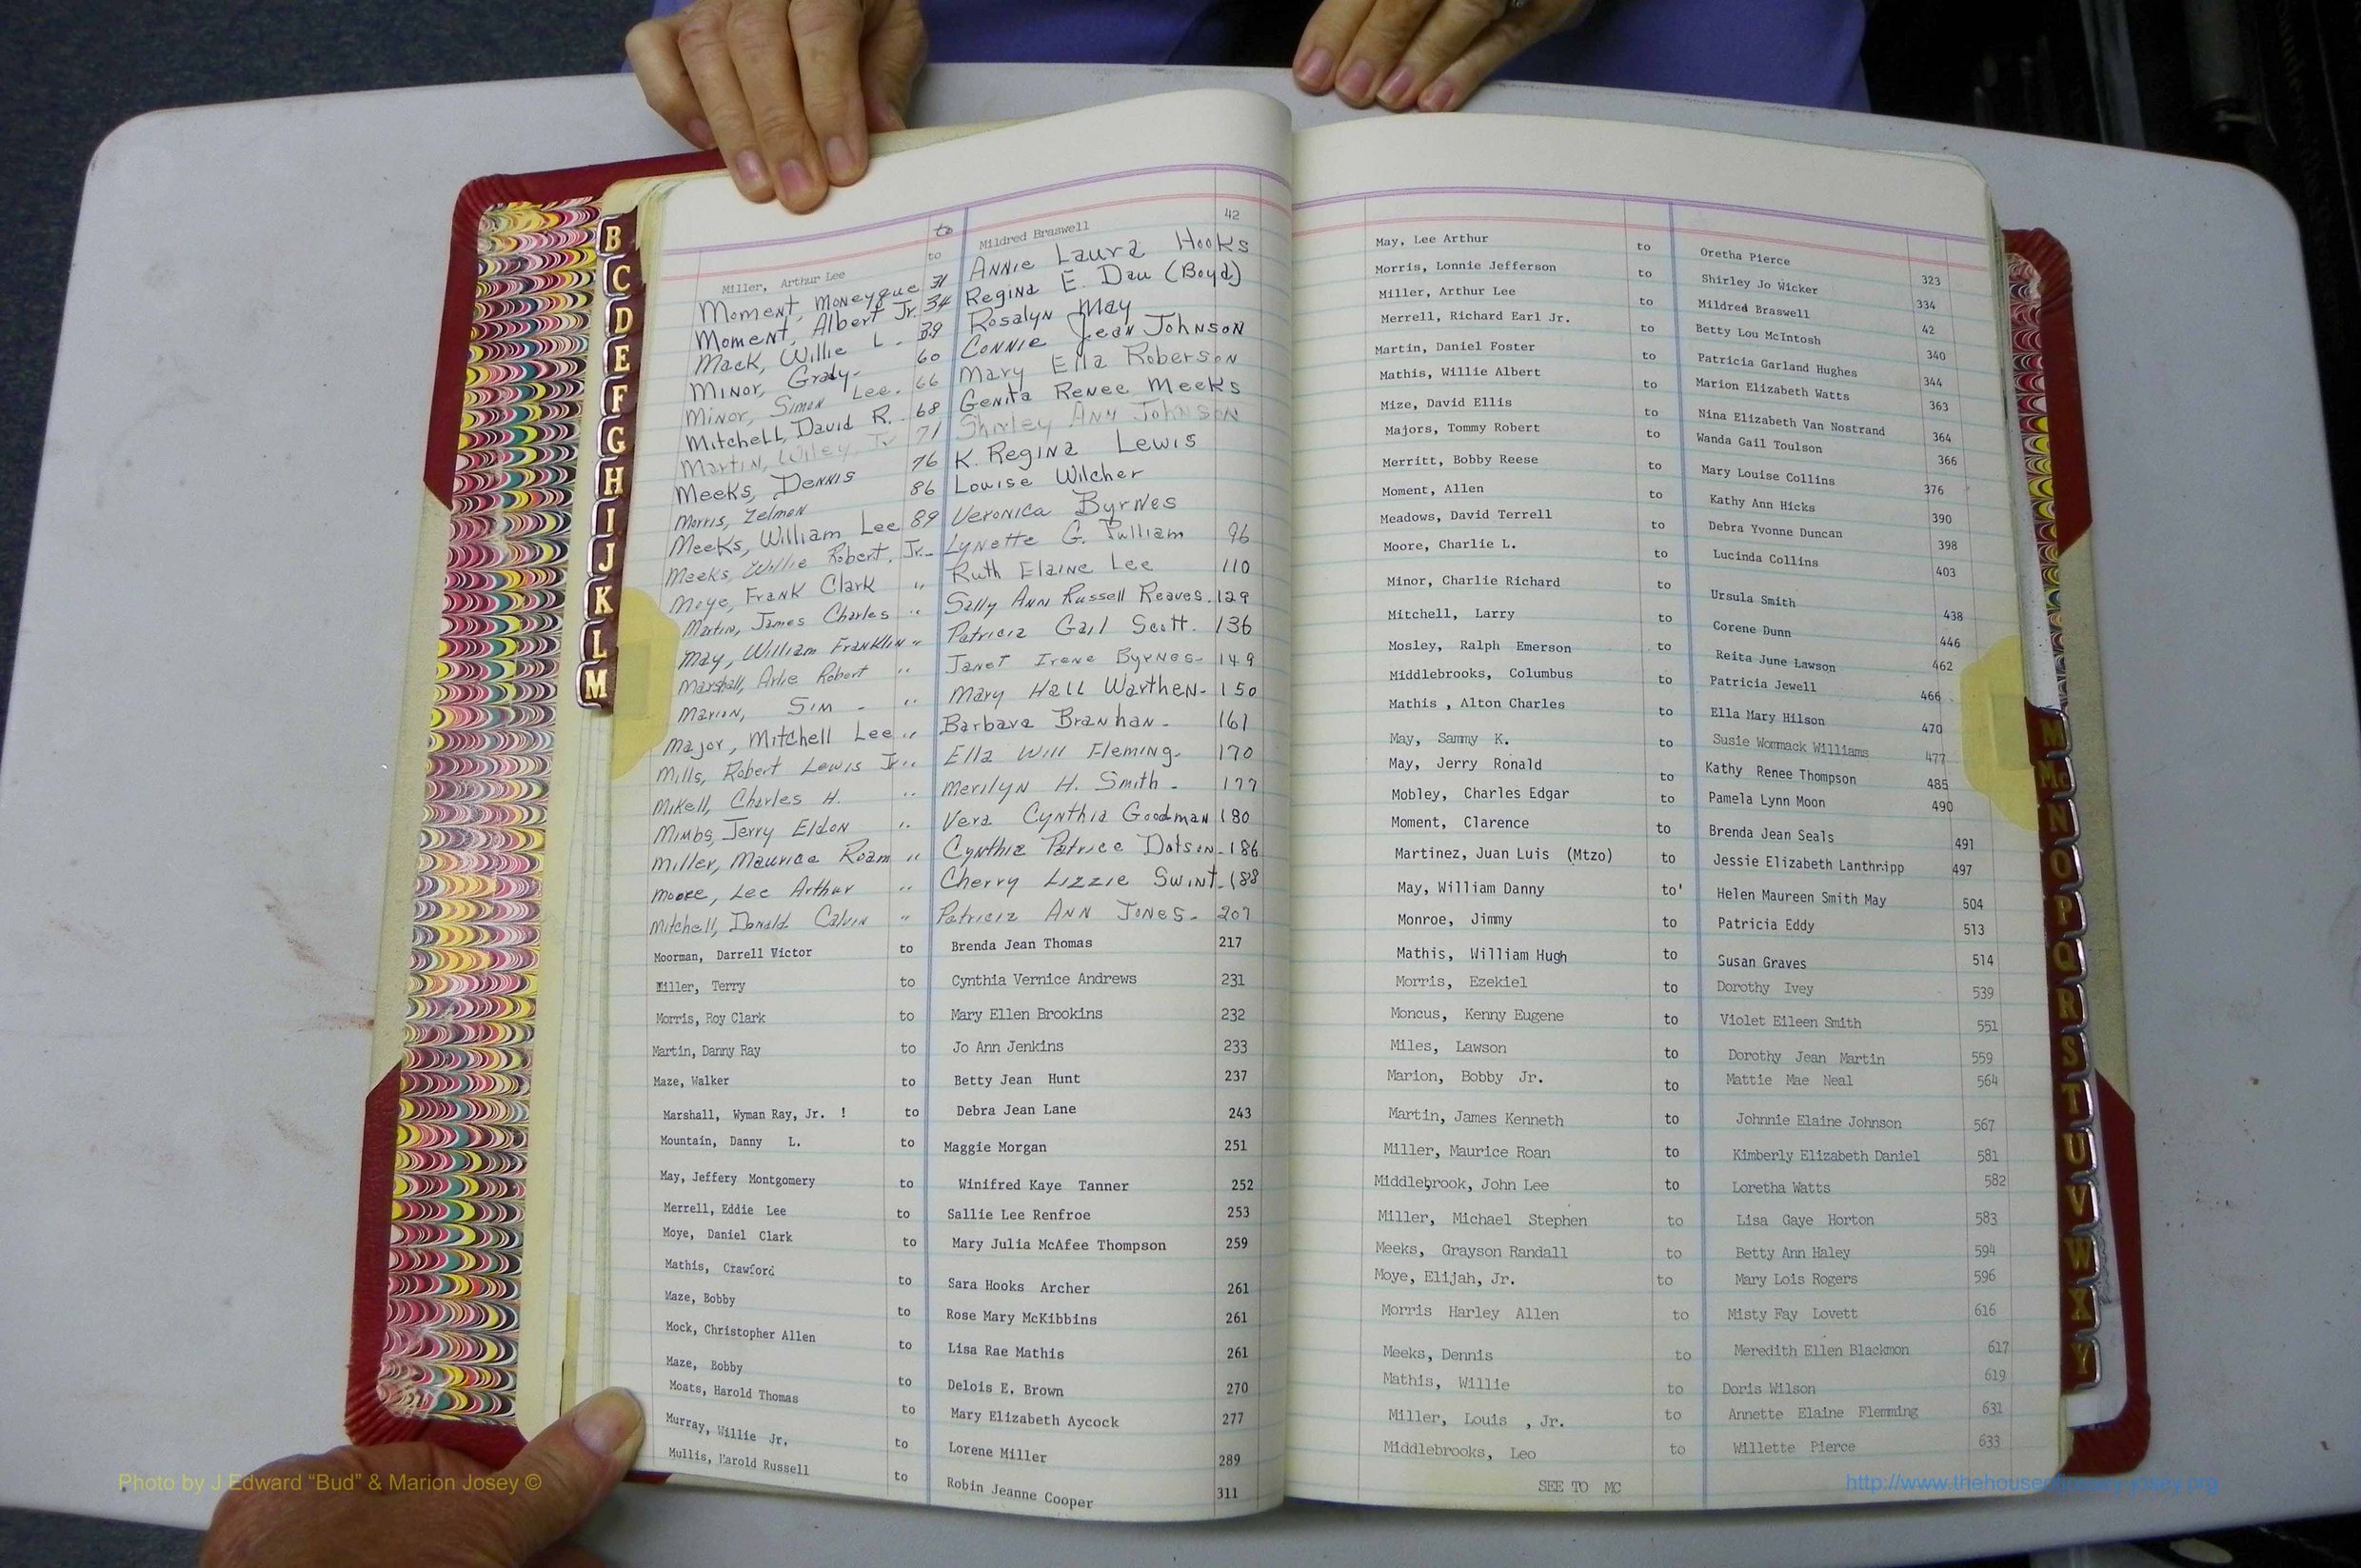 B
C
D
E
F
G
H
I
J
K
L
M
to Mildred Braswell 42
Miller, Arthur Lee to
Moment, Moneyque 31 Annie Laura Hooks
Moment, Albert Jr. 34 Regina E. Dau (Boyd)
Mack, Willie L. 39 Rosalyn May
Minor, Grady- 60 Connie Jean Johnson
Minor, Simon Lee. 66 Mary Ella Roberson
Mitchell, David R. 68 Genita Renee Meeks
Martin, Wiley, Jr 71 Shirley Ann Johnson
Meeks, Dennis 76 K. Regina Lewis
Morris, Zelmon 86 Louise Wilcher
Meeks, William Lee 89 Veronica Byrnes
Meeks, Willie Robert, Jr.- Lynette G. Pulliam 96
Moye, Frank Clark " Ruth Elaine Lee 110
Martin, James Charles " Sally Ann Russell Reaves. 129
May, William Franklin " Patricia Gail Scott. 136
Marshall, Arlie Robert " Janet Irene Byrnes- 149
Marion, Sim - " Mary Hall Warthen- 150
Major, Mitchell Lee " Barbara Branhan - 161
Mills, Robert Lewis Jr " Ella Will Fleming. 170
Mikell, Charles H. " Merilyn H. Smith - 177
Mimbs, Jerry Eldon " Vera Cynthia Goodman 180
Miller, Maurice Roam " Cynthia Patrice Dotson- 186
Moore, Lee Arthur " Cherry Lizzie Swint- 188
Mitchell, Donald Calvin " Patricia Ann Jones- 207
Moorman, Darrell Victor to Brenda Jean Thomas 217
Miller, Terry to Cynthia Vernice Andrews 231
Morris, Roy Clark to Mary Ellen Brookins 232
Martin, Danny Ray to Jo Ann Jenkins 233
Maze, Walker to Betty Jean Hunt 237
Marshall, Wyman Ray, Jr. ! to Debra Jean Lane 243
Mountain, Danny L. to Maggie Morgan 251
May, Jeffery Montgomery to Winifred Kaye Tanner 252
Merrell, Eddie Lee to Sallie Lee Renfroe 253
Moye, Daniel Clark to Mary Julia McAfee Thompson 259
Mathis, Crawford to Sara Hooks Archer 261
Maze, Bobby to Rose Mary McKibbins 261
Mock, Christopher Allen to Lisa Rae Mathis 261
Maze, Bobby to Delois E. Brown 270
Moats, Harold Thomas to Mary Elizabeth Aycock 277
Murray, Willie Jr. to Lorene Miller 289
Mullis, Harold Russell to Robin Jeanne Cooper 311
May, Lee Arthur to Oretha Pierce 323
Morris, Lonnie Jefferson to Shirley Jo Wicker 334
Miller, Arthur Lee to Mildred Braswell 42
Merrell, Richard Earl Jr. to Betty Lou McIntosh 340
Martin, Daniel Foster to Patricia Garland Hughes 344
Mathis, Willie Albert to Marion Elizabeth Watts 363
Mize, David Ellis to Nina Elizabeth Van Nostrand 364
Majors, Tommy Robert to Wanda Gail Toulson 366
Merritt, Bobby Reese to Mary Louise Collins 376
Moment, Allen to Kathy Ann Hicks 390
Meadows, David Terrell to Debra Yvonne Duncan 398
Moore, Charlie L. to Lucinda Collins 403
Minor, Charlie Richard to Ursula Smith 438
Mitchell, Larry to Corene Dunn 446
Mosley, Ralph Emerson to Reita June Lawson 462
Middlebrooks, Columbus to Patricia Jewell 466
Mathis , Alton Charles to Ella Mary Hilson 470
May, Sammy K. to Susie Wommack Williams 477
May, Jerry Ronald to Kathy Renee Thompson 485
Mobley, Charles Edgar to Pamela Lynn Moon 490
Moment, Clarence to Brenda Jean Seals 491
Martinez, Juan Luis (Mtzo) to Jessie Elizabeth Lanthripp 497
May, William Danny to' Helen Maureen Smith May 504
Monroe, Jimmy to Patricia Eddy 513
Mathis, William Hugh to Susan Graves 514
Morris, Ezekiel to Dorothy Ivey 539
Moncus, Kenny Eugene to Violet Eileen Smith 551
Miles, Lawson to Dorothy Jean Martin 559
Marion, Bobby Jr. to Mattie Mae Neal 564
Martin, James Kenneth to Johnnie Elaine Johnson 567
Miller, Maurice Roan to Kimberly Elizabeth Daniel 581
Middlebrook, John Lee to Loretha Watts 582
Miller, Michael Stephen to Lisa Gaye Horton 583
Meeks, Grayson Randall to Betty Ann Haley 594
Moye, Elijah, Jr. to Mary Lois Rogers 596
Morris Harley Allen to Misty Fay Lovett 616
Meeks, Dennis to Meredith Ellen Blackmon 617
Mathis, Willie to Doris Wilson 619
Miller, Louis , Jr. to Annette Elaine Flemming 631
Middlebrooks, Leo to Willette Pierce 633
SEE TO MC
M
Mc
N
O
P
Q
R
S
T
U
V
W
X
Y
Photo by J Edward “Bud” & Marion Josey ©
http://www.thehouseofjossey-josey.org